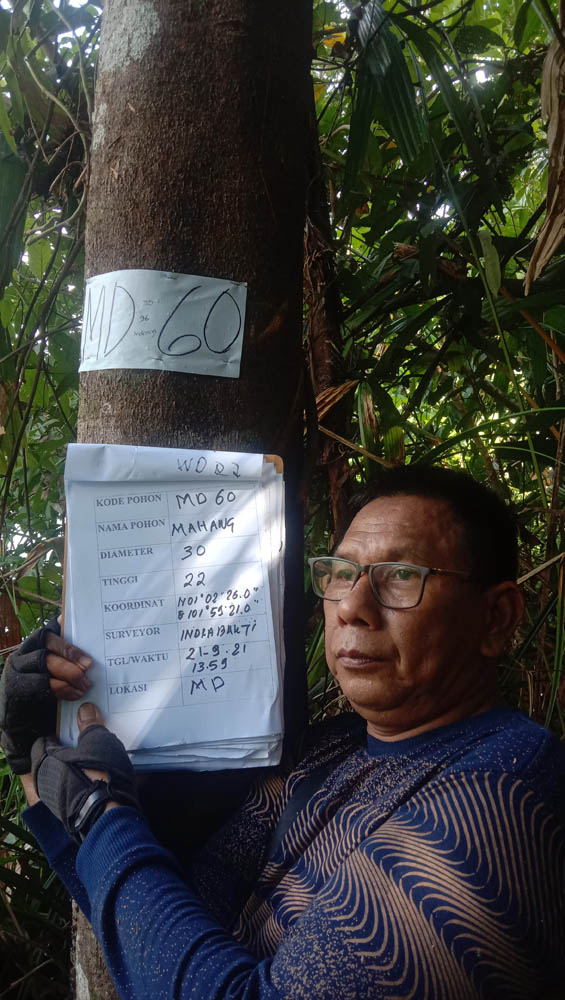 MD 60
30
96
WD02
KODE POHON MD 60
NAMA POHON MAHANG
DIAMETER 30
TINGGI 22
KOORDINAT N01°02'26.0"
E101°59'21.0"
SURVEYOR INDRA BAKTI
TGL/WAKTU 21-9-21
13:59
LOKASI MD